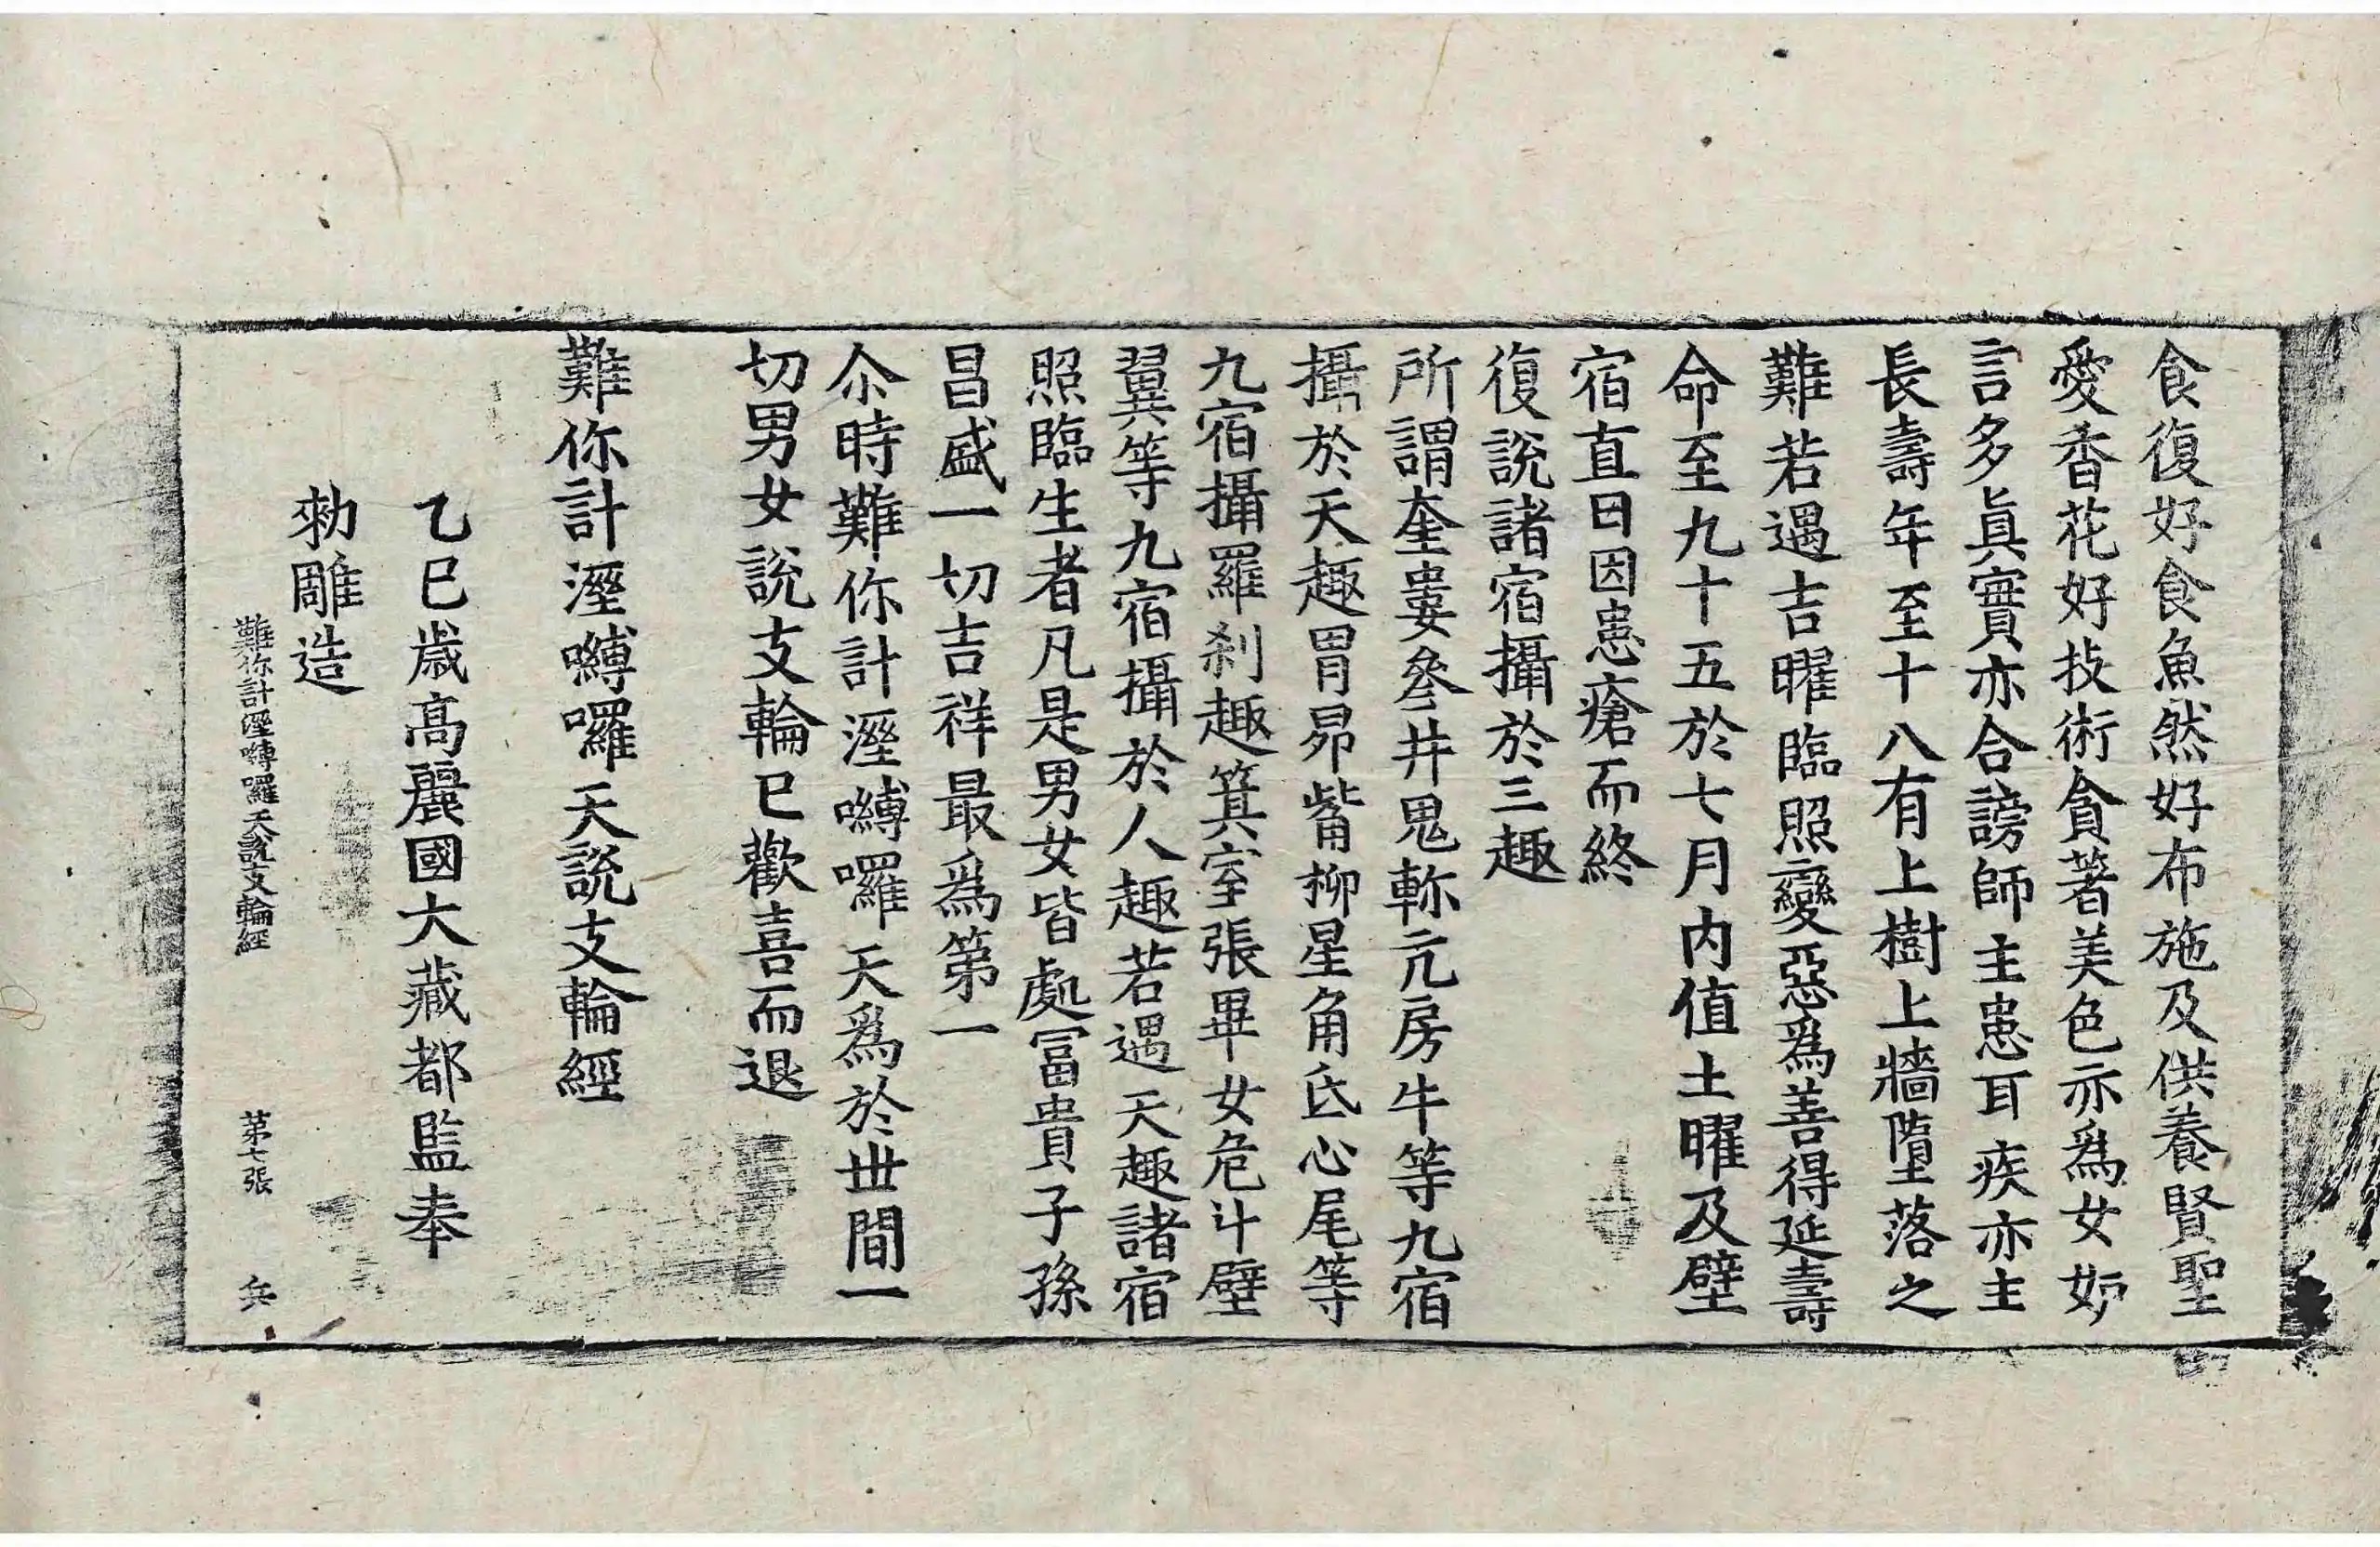 食復好食魚然好布施及供養賢聖
愛香花好技術貪著美色亦爲女妒
言多眞實亦合謗師主患耳疾亦主
長壽年至十八有上樹上牆墮落之
難若遇吉曜臨照變惡爲善得延壽
命至九十五於七月內值土曜及壁
宿直日因患瘡而終
復說諸宿攝於三趣
所謂奎婁參井鬼軫亢房牛等九宿
攝於天趣胃昴觜柳星角氐心尾等
九宿攝羅刹趣箕室張畢女危斗壁
翼等九宿攝於人趣若遇天趣諸宿
照臨生者凡是男女皆處冨貴子孫
昌盛一切吉祥最爲第一
尒時難你計濕嚩囉天爲於世間一
切男女說支輪已歡喜而退
難你計濕嚩囉天說支輪經
乙巳歲高麗國大藏都監奉
勑雕造
難你計濕嚩囉天說支輪經 第七張 兵